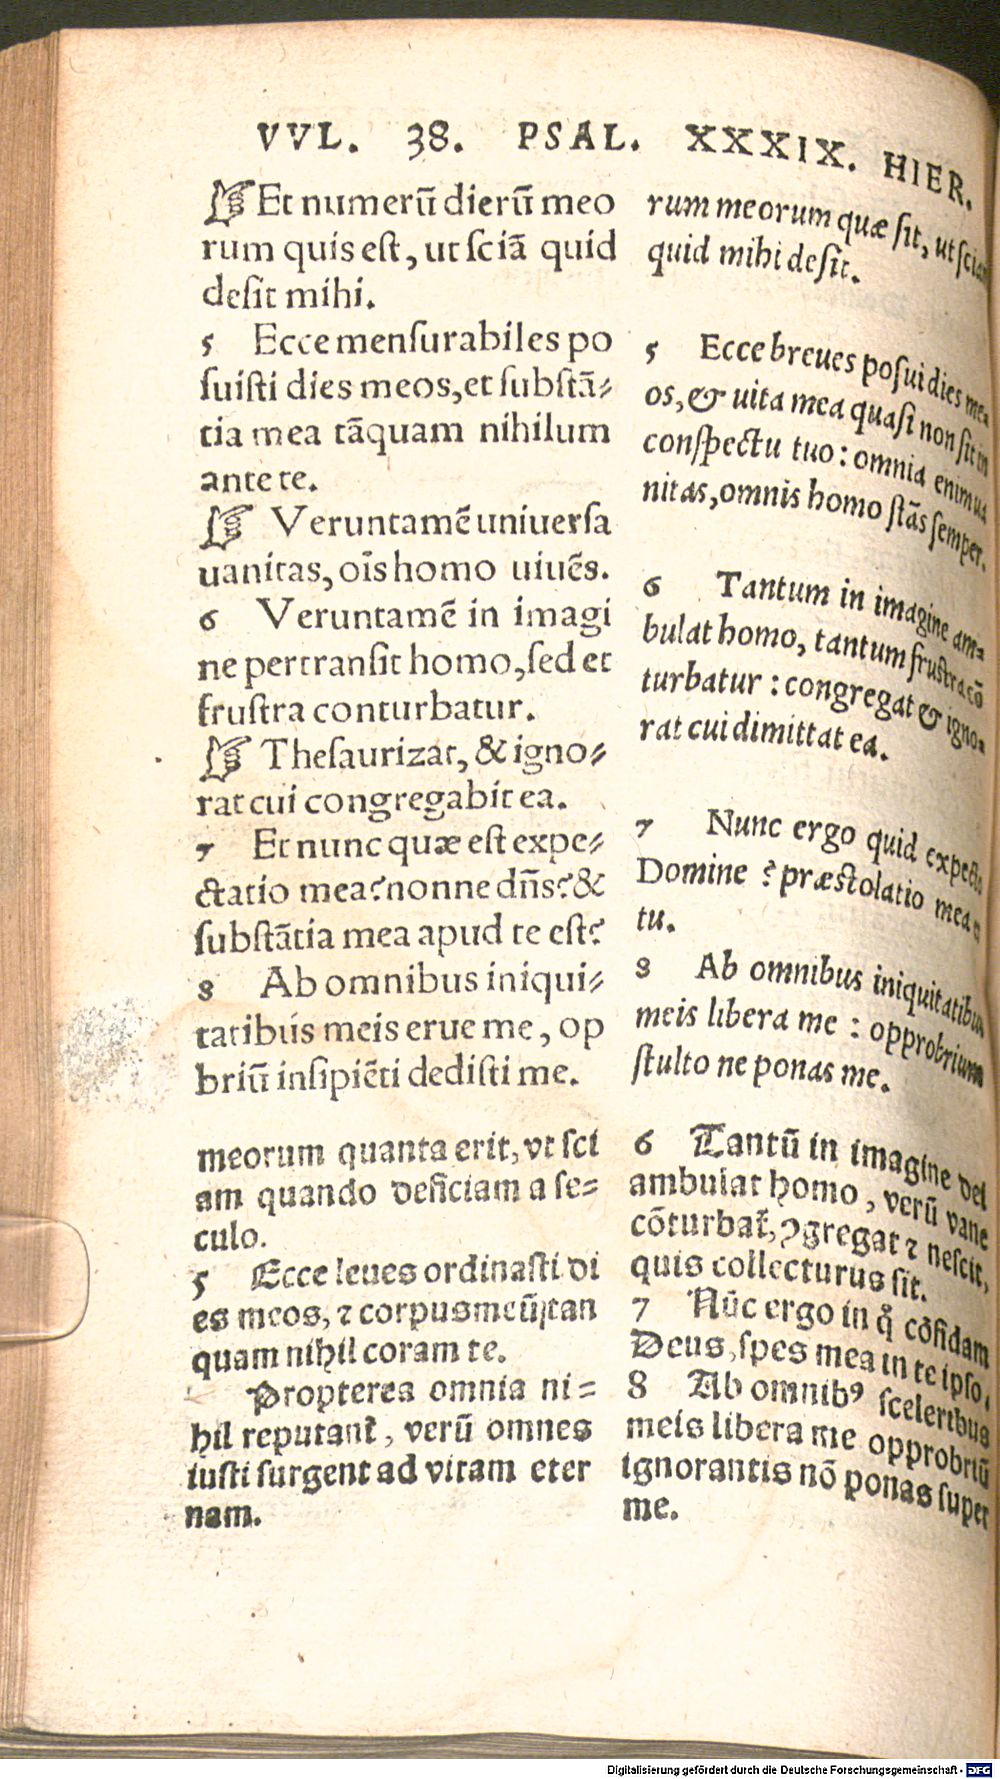 VVL. 38. PSAL. XXXIX. HIER.
☞ Et numerũ dierũ meo
rum quis est, ut sciã quid
desit mihi.
5 Ecce mensurabiles po
suisti dies meos, et substã-
tia mea tãquam nihilum
ante te.
☞ Veruntamẽ uniuersa
uanitas, oĩs homo uiuẽs.
6 Veruntamẽ in imagi
ne pertransit homo, sed et
frustra conturbatur.
☞ Thesaurizat, & igno-
rat cui congregabit ea.
7 Et nunc quæ est expe-
ctatio mea? nonne dñs? &
substãtia mea apud te est?
8 Ab omnibus iniqui-
tatibus meis erue me, op
briũ insipiẽti dedisti me.
rum meorum quæ sit, ut sciam
quid mihi desit.
5 Ecce breues posui dies me-
os, & uita mea quasi non sit in
conspectu tuo: omnia enim ua
nitas, omnis homo stãs semper.
6 Tantum in imagine am-
bulat homo, tantum frustra cõ
turbatur: congregat & igno-
rat cui dimittat ea.
7 Nunc ergo quid expecto
Domine? præstolatio mea
tu.
8 Ab omnibus iniquitatibus
meis libera me: opprobrium
stulto ne ponas me.
meorum quanta erit, vt sci
am quando deficiam a se-
culo.
5 Ecce leues ordinasti di
es meos, ⁊ corpus meũ tan
quam nihil coram te.
Propterea omnia ni-
hil reputant̃, verũ omnes
iusti surgent ad vitam eter
nam.
6 Tantũ in imagine dei
ambulat homo, verũ vane
cõturbat̃, ꝯgregat ⁊ nescit,
quis collecturus sit.
7 Nũc ergo in q̃ cõfidam
Deus, spes mea in te ipso.
8 Ab omnibꝰ sceleribus
meis libera me opprobriũ
ignorantis nõ ponas super
me.
Digitalisierung gefördert durch die Deutsche Forschungsgemeinschaft - DFG